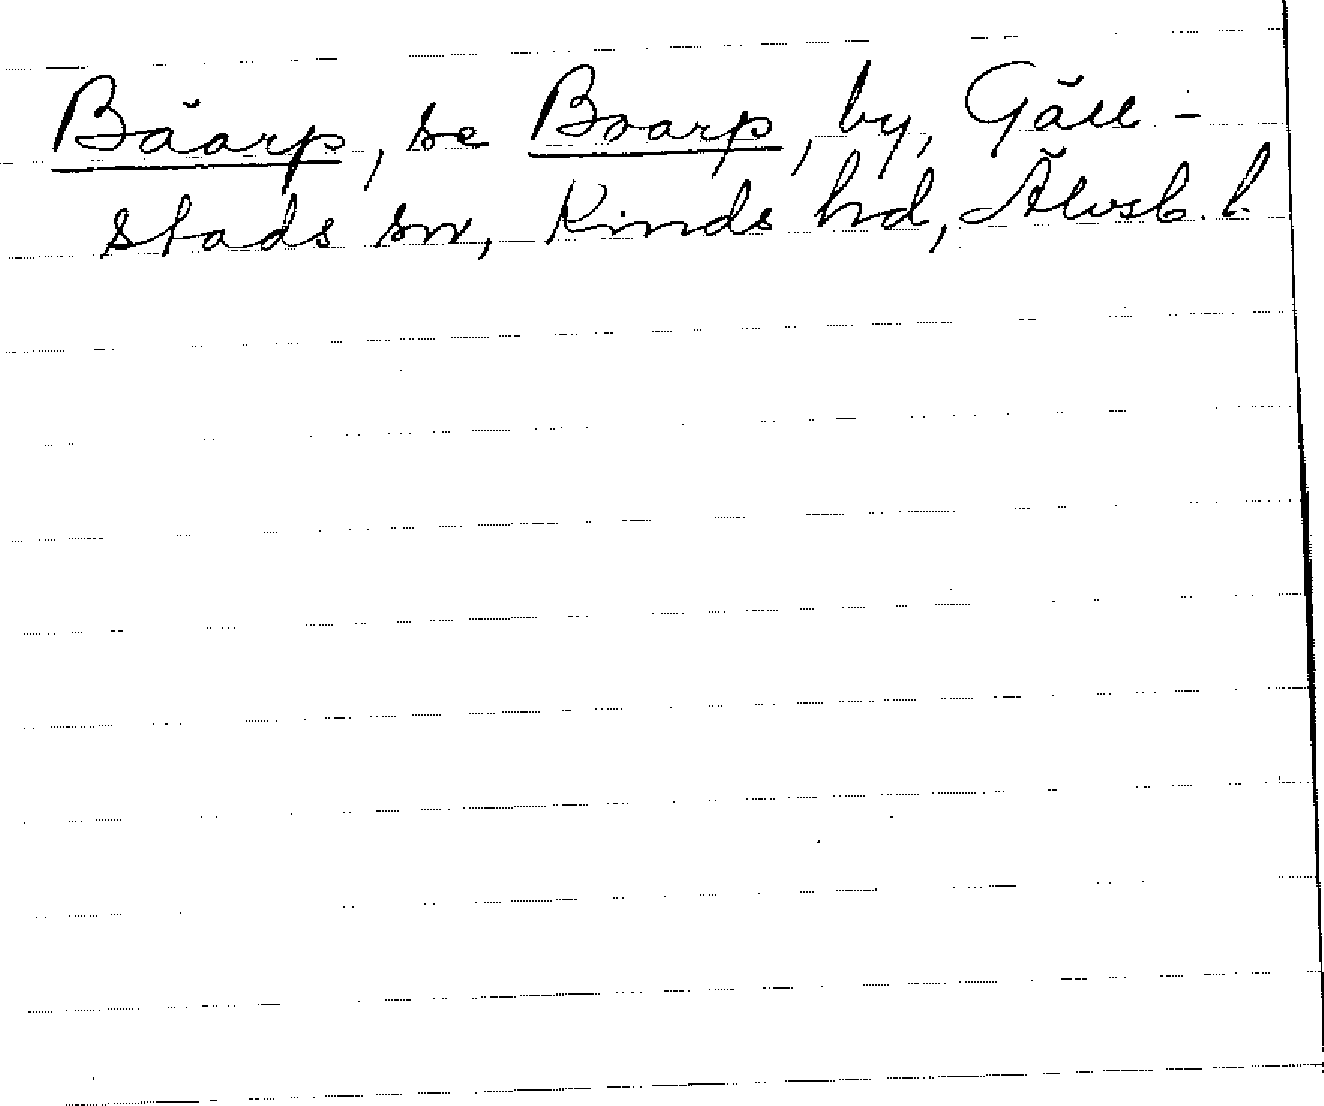 Båarp, se Boarp, by, Gäll-
stads sn, Kinds hd, Älvsb. l